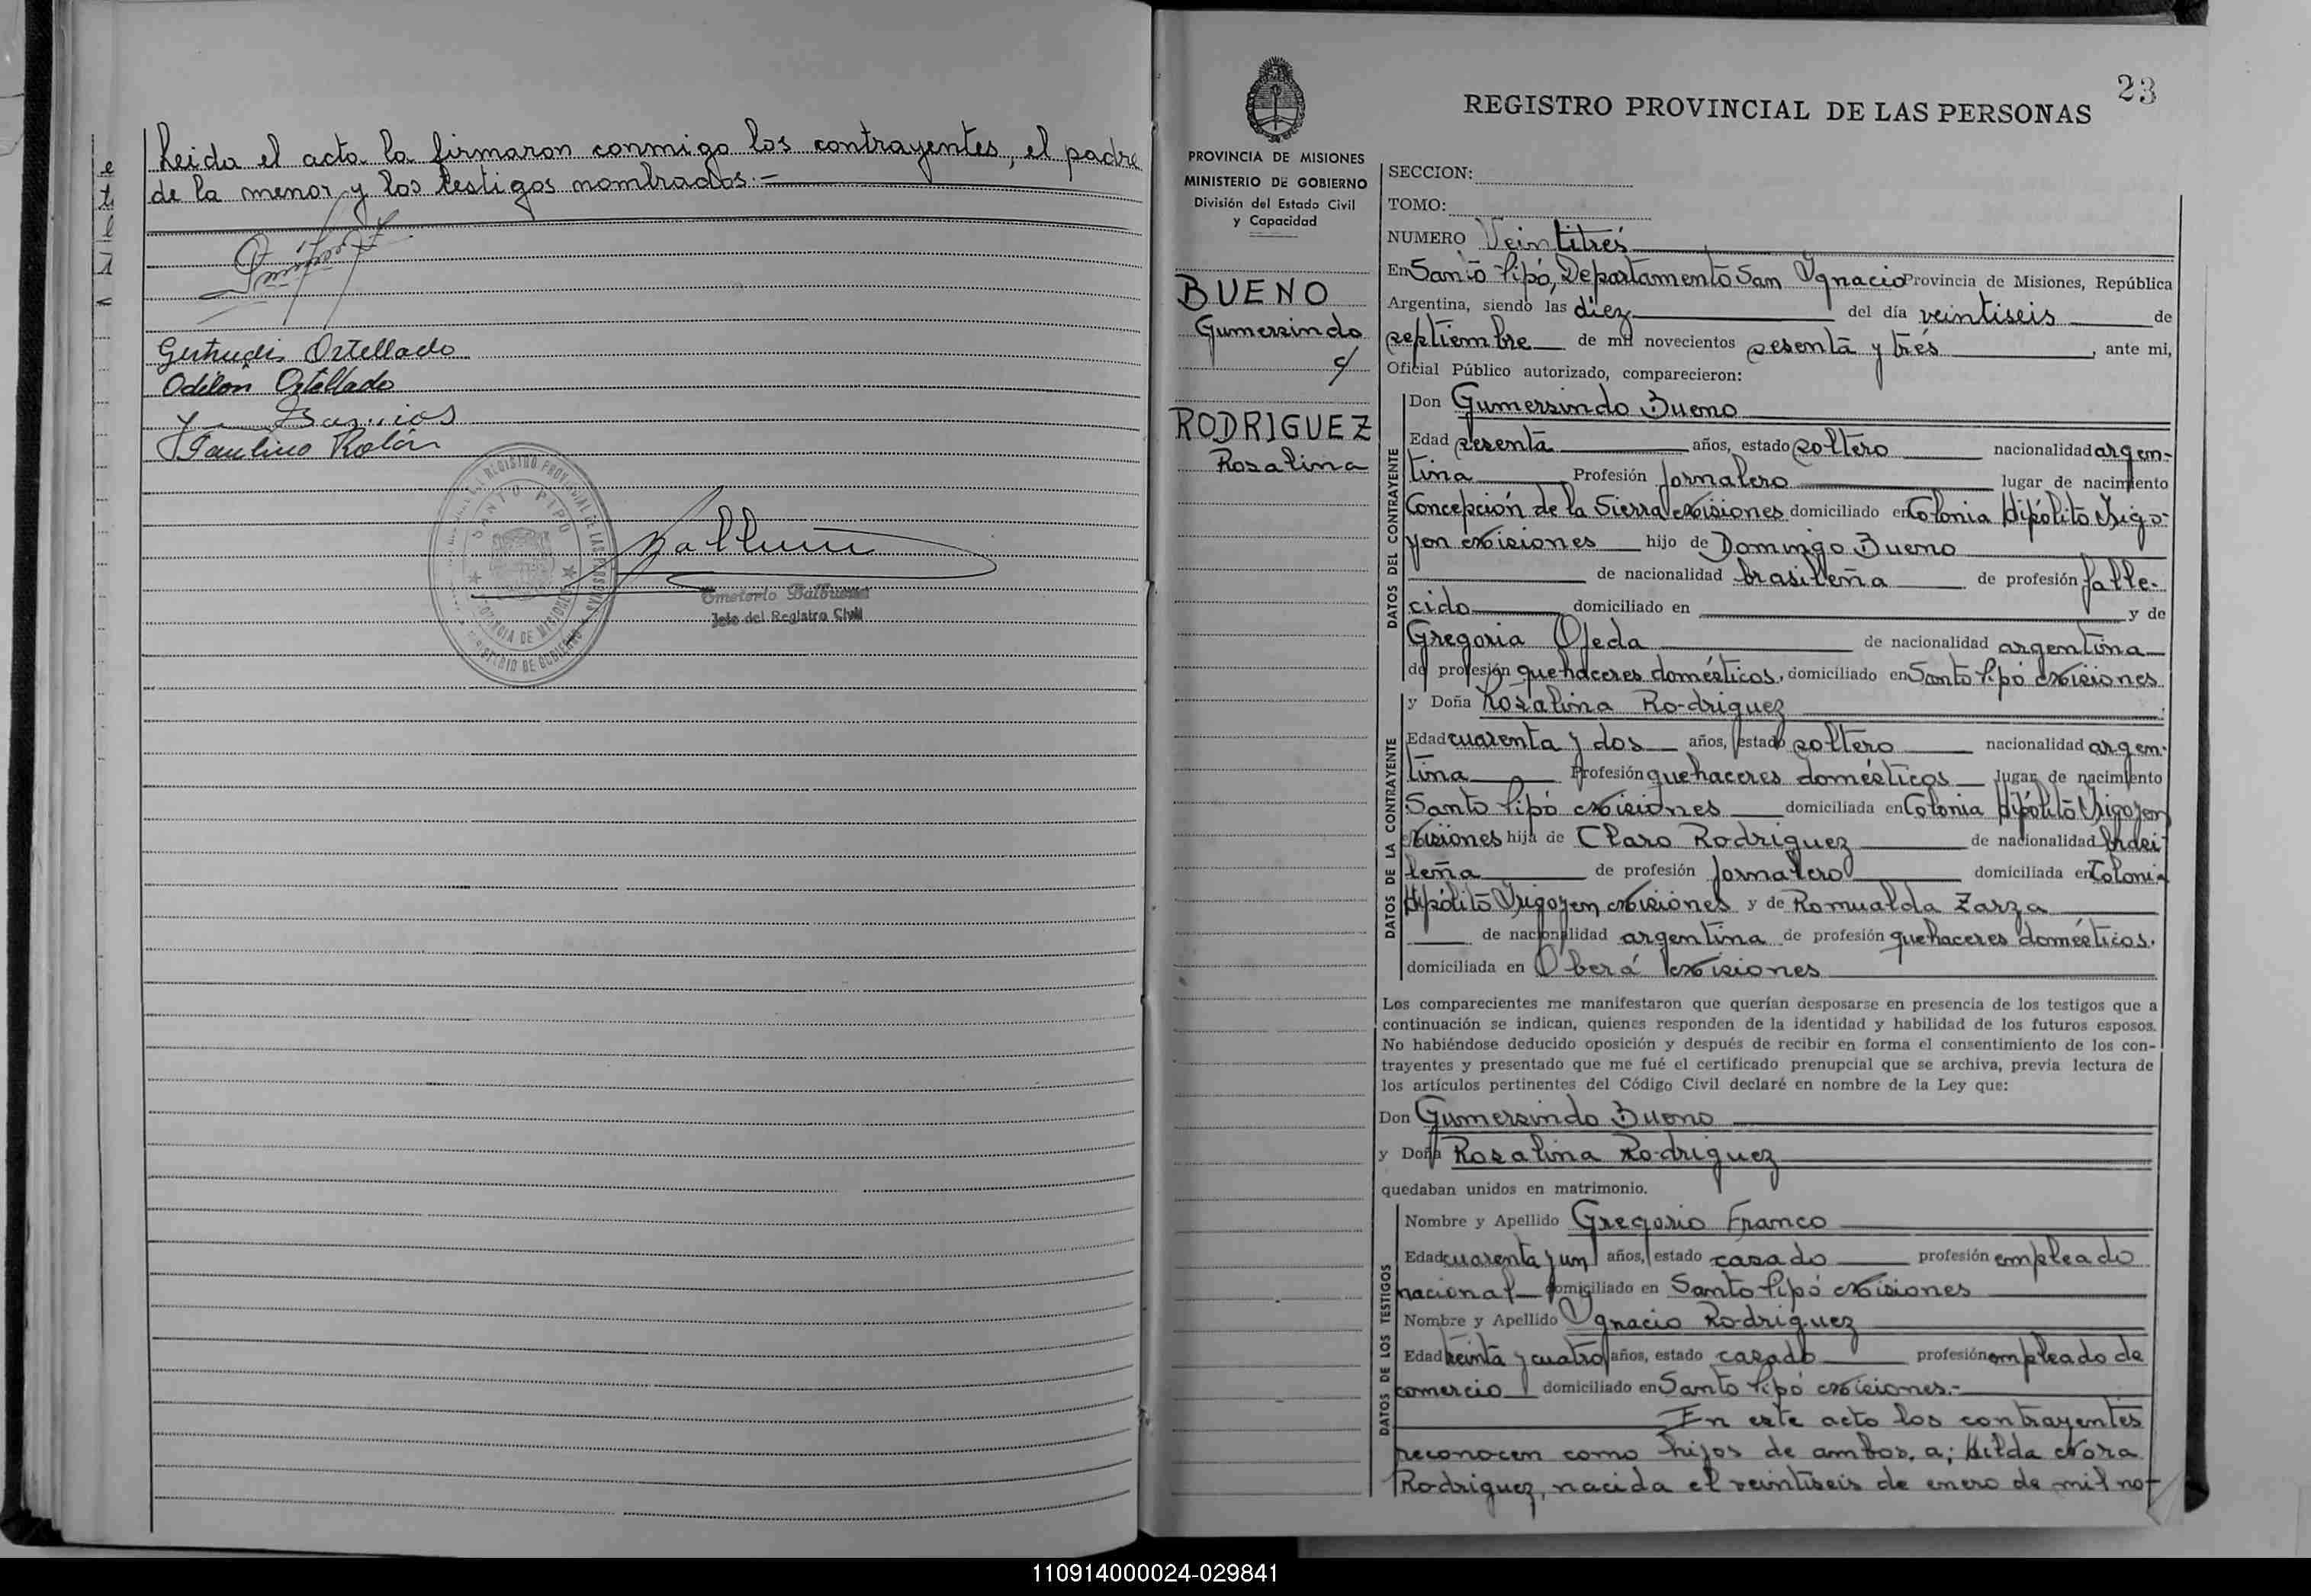 Leida el acta la firmaron conmigo los contrayentes, el padre
de la menor y los testigos nombrados:-
Gertrudis Ortellado
Odilon Ortellado
Barrios
Paulino Rolón
REGISTRO PROVINCIAL DE LAS PERSONAS
SANTO PIPO
PROVINCIA DE MISIONES
MINISTERIO DE GOBIERNO
Emeterio Balbuena
Jefe del Registro Civil
23
REGISTRO PROVINCIAL DE LAS PERSONAS
PROVINCIA DE MISIONES
MINISTERIO DE GOBIERNO
División del Estado Civil
y Capacidad
BUENO
Gumersindo
c/
RODRIGUEZ
Rosalina
SECCION:
TOMO:
NUMERO Veintitrés
En Santo Pipó, Departamento San Ygnacio Provincia de Misiones, República
Argentina, siendo las diez del día veintiseis de
septiembre de mil novecientos sesenta y trés, ante mi,
Oficial Público autorizado, comparecieron:
DATOS DEL CONTRAYENTE
Don Gumersindo Bueno
Edad sesenta años, estado soltero nacionalidad argen-
tina Profesión Jornalero lugar de nacimiento
Concepción de la Sierra Misiones domiciliado en Colonia Hipólito Yrigo-
yen Misiones hijo de Domingo Bueno
de nacionalidad brasileña de profesión falle-
cido domiciliado en y de
Gregoria Ojeda de nacionalidad argentina
de profesión quehaceres domésticos, domiciliado en Santo Pipó Misiones
DATOS DE LA CONTRAYENTE
y Doña Rosalina Rodriguez
Edad cuarenta y dos años, estado soltero nacionalidad argen-
tina Profesión quehaceres domésticos lugar de nacimiento
Santo Pipó Misiones domiciliada en Colonia Hipólito Yrigoyen
Misiones hija de Claro Rodriguez de nacionalidad brasi-
leña de profesión Jornalero domiciliada en Colonia
Hipólito Yrigoyen Misiones y de Romualda Zarza
de nacionalidad argentina de profesión quehaceres domésticos.
domiciliada en Oberá Misiones
Los comparecientes me manifestaron que querían desposarse en presencia de los testigos que a
continuación se indican, quienes responden de la identidad y habilidad de los futuros esposos.
No habiéndose deducido oposición y después de recibir en forma el consentimiento de los con-
trayentes y presentado que me fué el certificado prenupcial que se archiva, previa lectura de
los artículos pertinentes del Código Civil declaré en nombre de la Ley que:
Don Gumersindo Bueno
y Doña Rosalina Rodriguez
quedaban unidos en matrimonio.
DATOS DE LOS TESTIGOS
Nombre y Apellido Gregorio Franco
Edad cuarenta y un años, estado casado profesión empleado
nacional domiciliado en Santo Pipó Misiones
Nombre y Apellido Ygnacio Rodriguez
Edad treinta y cuatro años, estado casado profesión empleado de
comercio domiciliado en Santo Pipó Misiones.-
En este acto los contrayentes
reconocen como hijos de ambos, a; Hilda Nora
Rodriguez, nacida el veintiseis de enero de mil no-
110914000024-029841